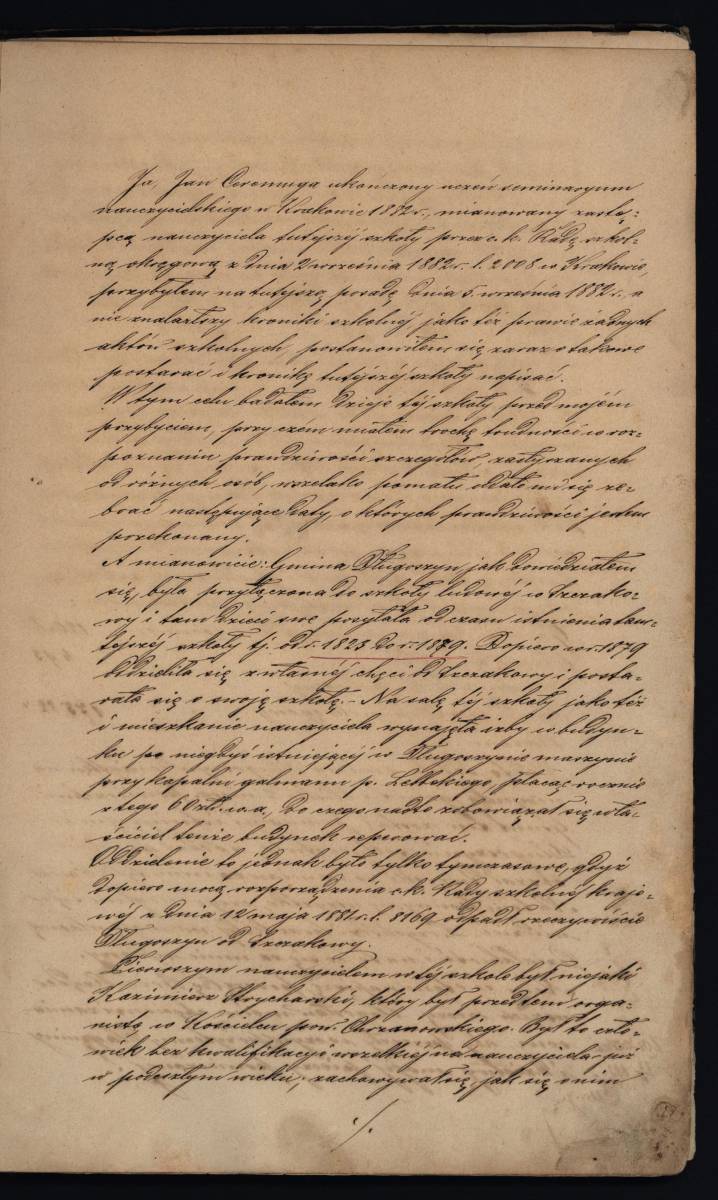 Ja, Jan Ceremuga ukończony uczeń seminaryum
nauczycielskiego w Krakowie 1882 r., mianowany zastę-
pcą nauczyciela tutejszéj szkoły przez c. k. Radę szkol-
ną okręgową z dnia 2 września 1882 r. l. 2008 w Krakowie,
przybyłem na tutejszą posadę dnia 5. września 1882 r., a
nie znalazłszy kroniki szkolnéj jako téż prawie żadnych
aktów szkolnych, postanowiłem się zaraz o takowe
postarać i kronikę tutejszéj szkoły napisać.
W tym celu badałem dzieje téj szkoły przed mojém
przybyciem, przy czem miałem trochę trudności w roz-
poznaniu prawdziwości szczegółów, zasłyszanych
od różnych osób, wszelako pomału udało mi się ze-
brać następujące daty, o których prawdziwości jestem
przekonany.
A mianowicie: Gmina Długoszyn, jak dowiedziałem
się, była przyłączona do szkoły ludowéj w Szczako-
wy i tam dzieci swe posyłała od czasu istnienia tam-
tejszéj szkoły tj. od r. 1823 do r. 1879. Dopiero w r. 1879
oddzieliła się z własnéj chęci od Szczakowy i posta-
rała się o swoję szkołę. - Na salę téj szkoły jako téż
i mieszkanie nauczyciela wynajęła izby w budyn-
ku po niegdyś istniejącéj w Długoszynie maszynie
przy kopalni galmanu p. płacąc rocznie
z tego 60 złr. w. a., do czego nadto zobowiązał się wła-
ściciel tenże budynek reperować.
Oddzielenie to jednak było tylko tymczasowe, gdyż
dopiero mocą rozporządzenia c. k. Rady szkolnéj krajo-
wéj z dnia 12 maja 1881 r. l. 8169 odpadł rzeczywiście
Długoszyn od Szczakowy.
Pierwszym nauczycielem w téj szkole był niejaki
Kazimierz Strycharski, który był przedtem orga-
nistą w Kościelcu pow. Chrzanowskiego. Był to czło-
wiek bez kwalifikacyi wszelkiéj na nauczyciela już
w podeszłym wieku; zachowywał się, jak się o nim
./.